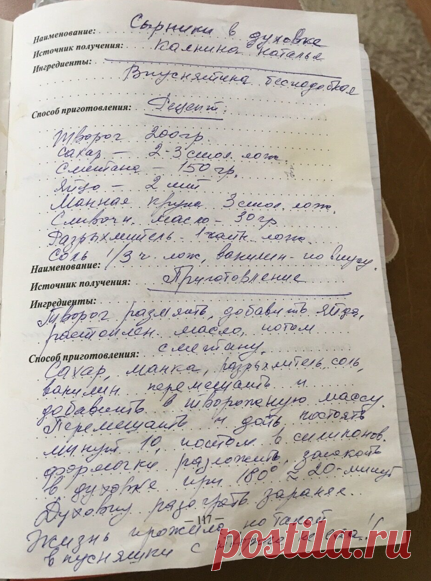 Наименование: Сырники в духовке
Источник получения: Калинина Наталья
Ингредиенты:
Вкуснятина бесподобная
Способ приготовления: Рецепт:
Творог 200 гр.
Сахар – 2-3 стол. лож.
Сметана – 150 гр.
Яйцо – 2 шт.
Манная крупа 3 стол. лож.
Сливочн. масло – 30 гр
Разрыхлитель 1 чайн. лож.
Соль 1/3 ч. лож, ванилин по вкусу.
Наименование:
Источник получения: Приготовление
Ингредиенты:
Творог размять, добавить яйца,
растоплен. масло, потом
Способ приготовления: сметану,
Сахар, манка, разрыхлитель, соль,
ванилин перемешать и
добавить в творожную массу.
Перемешать и дать постоять
минут 10, потом в силиконов.
формочки разложить, запекать
в духовке при 180° ≈ 20-минут
Духовку разогреть заранее.
117
Жизнь прожила, но такой
вкусняшки с
postila.ru